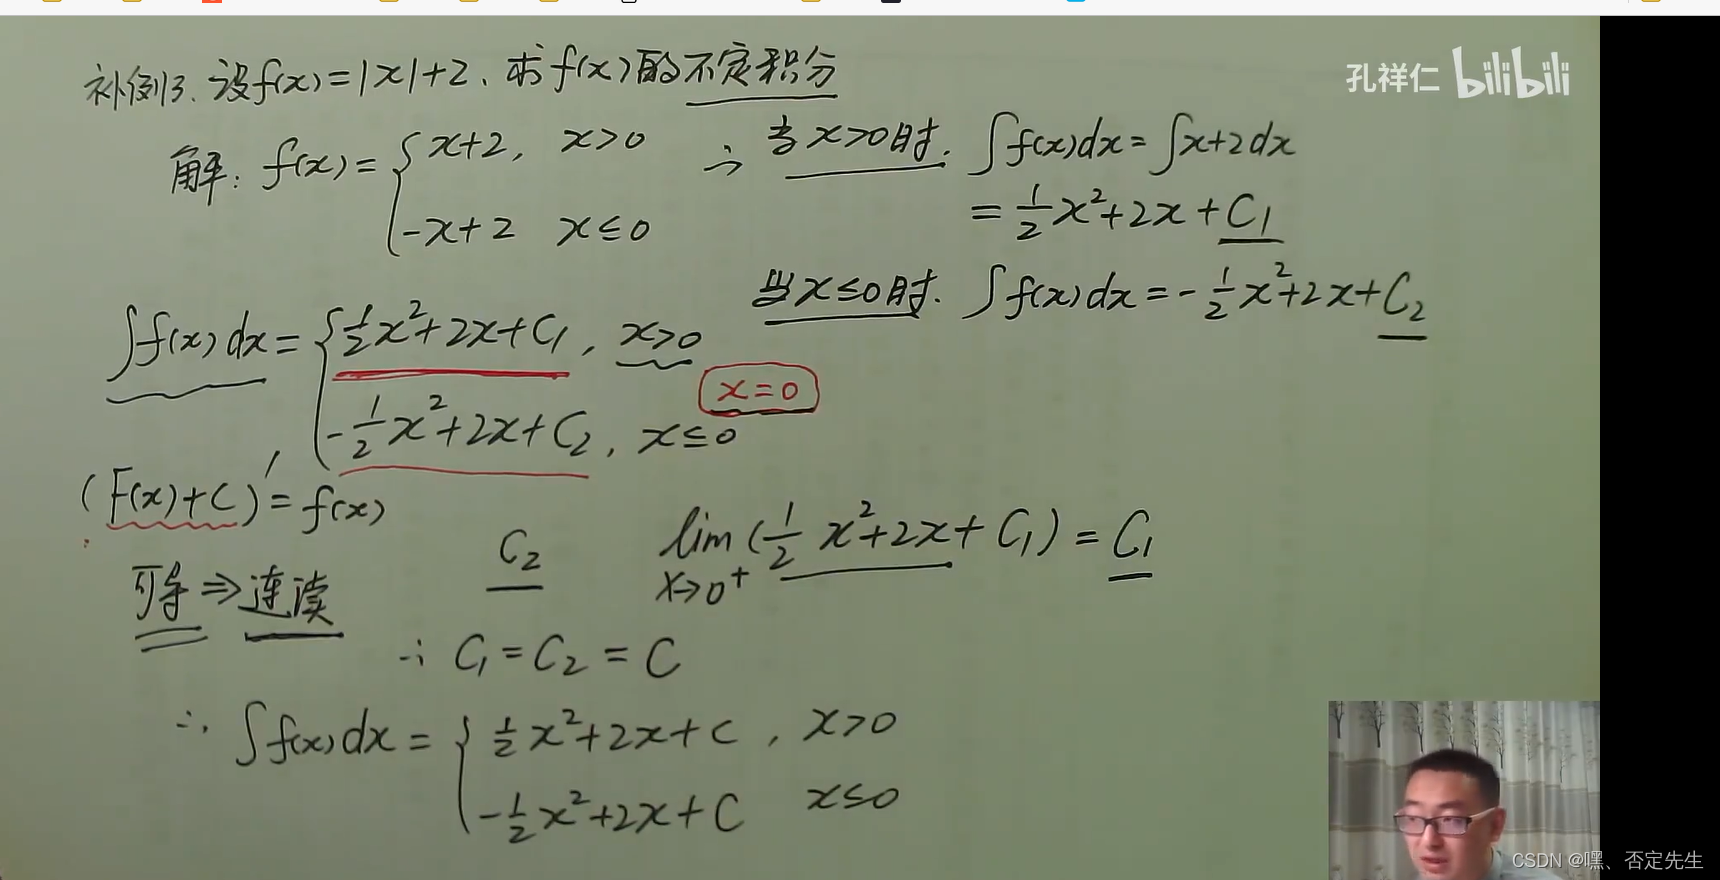 孔祥仁 bilibili
补例13. 设f(x)=|x|+2、求f(x)的不定积分
解: f(x)= { x+2, x>0
-x+2 x≤0
∴ 当x>0时. ∫f(x)dx=∫x+2dx
=½x²+2x+C₁
当x≤0时. ∫f(x)dx=-½x²+2x+C₂
∫f(x)dx= { ½x²+2x+C₁, x>0
-½x²+2x+C₂, x≤0
x=0
(F(x)+C)'=f(x)
可导⇒连读
C₂ lim (½x²+2x+C₁)=C₁
x→0⁺
∴ C₁=C₂=C
∴ ∫f(x)dx= { ½x²+2x+C, x>0
-½x²+2x+C x≤0
CSDN @嘿、否定先生